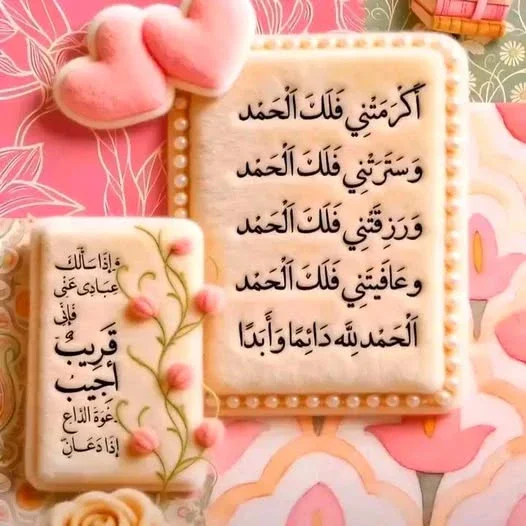 أَكْرَمَتْنِي فَلَكَ اَلْحَمْد
وَسَتَرَتْنِي فَلَكَ اَلْحَمْد
وَرَزِقَتْنِي فَلَكَ اَلْحَمْد
وعَافَيتَنِي فَلَكَ اَلْحَمْد
اَلْحَمْد لِلَّه دَائِمًا وَأَبَدًا
وَإِذَا سَأَلَكَ
عِبَادِى عَنِّى
فَإِنِّى
قَرِيبٌ
أُجِيبُ
دَعْوَةَ الدَّاعِ
إِذَا دَعَانِ